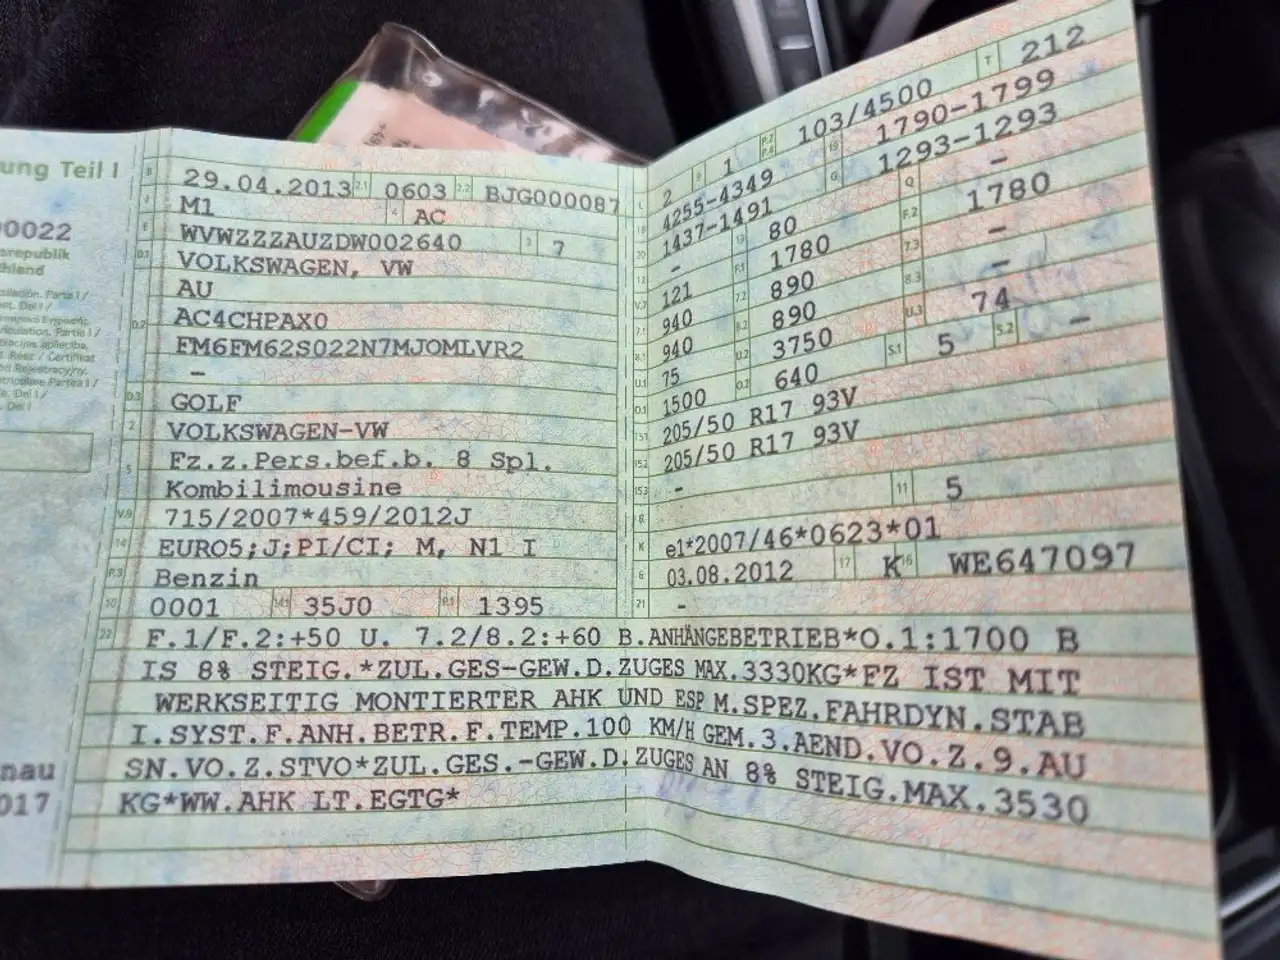 ung Teil I
0022
srepublik
hland
nau
017
B 29.04.2013 2.1 0603 2.2 BJG000087
J M1 4 AC
E WVWZZZAUZDW002640 3 7
D.1 VOLKSWAGEN, VW
AU
D.2 AC4CHPAX0
FM6FM62S022N7MJOMLVR2
–
D.3 GOLF
2 VOLKSWAGEN-VW
5 Fz.z.Pers.bef.b. 8 Spl.
Kombilimousine
V.9 715/2007*459/2012J
14 EURO5;J;PI/CI; M, N1 I
P.3 Benzin
10 0001 14.1 35J0 P.1 1395
L 2 9 1 P.2 P.4 103/4500 T 212
18 4255-4349 19 1790-1799
20 1437-1491 G 1293-1293
12 - 13 80 Q –
V.7 121 F.1 1780 F.2 1780
7.1 940 7.2 890 7.3 –
8.1 940 8.2 890 8.3 –
U.1 75 U.2 3750 U.3 74
O.1 1500 O.2 640 S.1 5 S.2 –
15.1 205/50 R17 93V
15.2 205/50 R17 93V
15.3 -
R 11 5
K e1*2007/46*0623*01
6 03.08.2012 17 K 16 WE647097
21 -
22 F.1/F.2:+50 U. 7.2/8.2:+60 B.ANHÄNGEBETRIEB*O.1:1700 B
IS 8% STEIG.*ZUL.GES-GEW.D.ZUGES MAX.3330KG*FZ IST MIT
WERKSEITIG MONTIERTER AHK UND ESP M.SPEZ.FAHRDYN.STAB
I.SYST.F.ANH.BETR.F.TEMP.100 KM/H GEM.3.AEND.VO.Z.9.AU
SN.VO.Z.STVO*ZUL.GES.-GEW.D.ZUGES AN 8% STEIG.MAX.3530
KG*WW.AHK LT.EGTG*